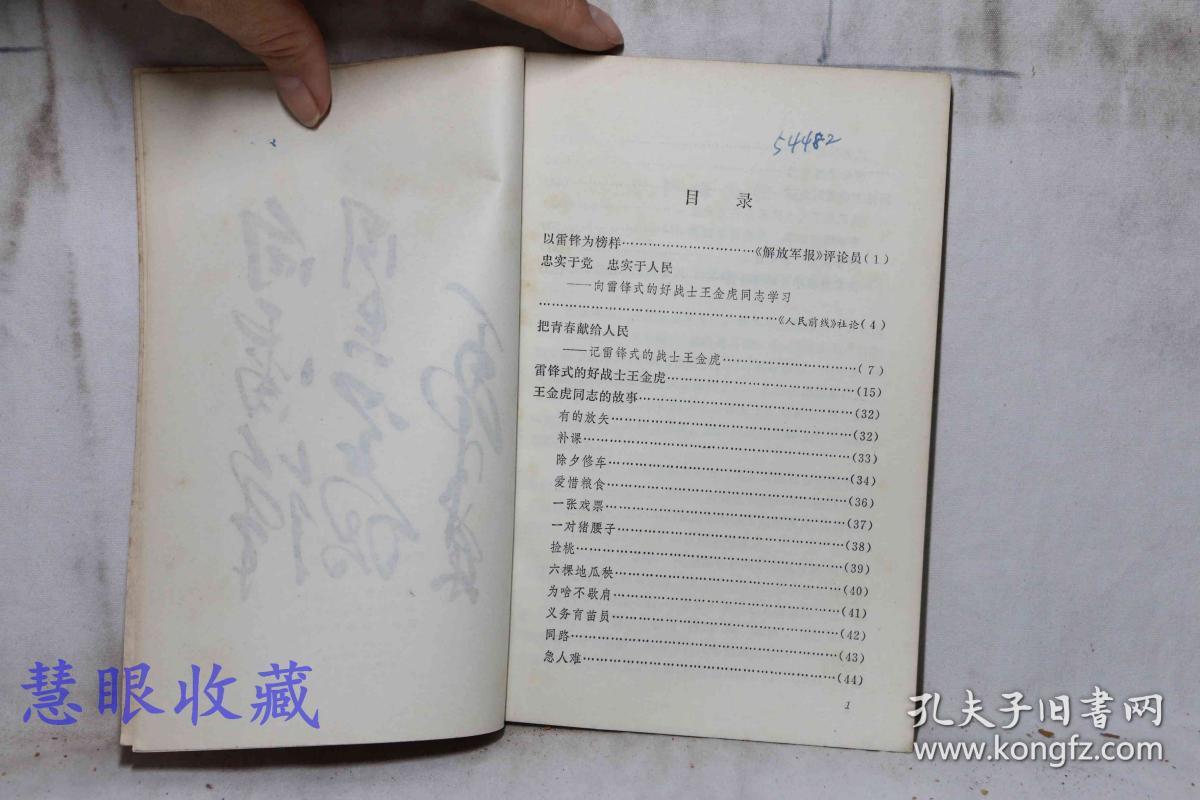 54482
目 录
以雷锋为榜样…………………………《解放军报》评论员(1)
忠实于党 忠实于人民
——向雷锋式的好战士王金虎同志学习
………………………………………………《人民前线》社论(4)
把青春献给人民
——记雷锋式的战士王金虎…………………………(7)
雷锋式的好战士王金虎……………………………………(15)
王金虎同志的故事…………………………………………(32)
有的放矢……………………………………………………(32)
补课…………………………………………………………(33)
除夕修车……………………………………………………(34)
爱惜粮食……………………………………………………(36)
一张戏票……………………………………………………(37)
一对猪腰子…………………………………………………(38)
捡桃…………………………………………………………(39)
六棵地瓜秧…………………………………………………(40)
为啥不歇肩…………………………………………………(41)
义务育苗员…………………………………………………(42)
同路…………………………………………………………(43)
急人难………………………………………………………(44)
1
慧眼收藏
孔夫子旧书网
www.kongfz.com